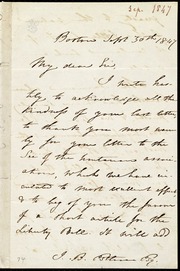 Sep. 1847
Boston Sept 30th 1847
My dear Sir,
I write has-
tily to acknowledge all the
kindness of your last letter
to thank you most warm-
ly for your letter to the
Sec of the
ation, which we have cir-
culated to most excellent effect
& to beg of you the favor
of a short article for the
Liberty Bell. It will add
J. B. Estlin Esq.